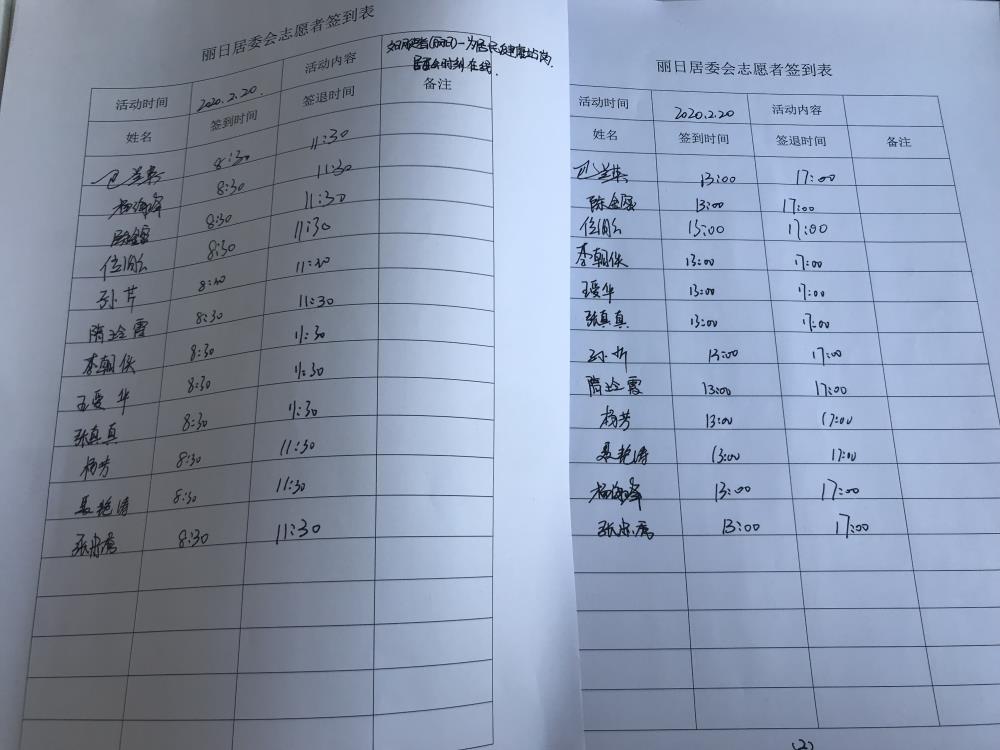 丽日居委会志愿者签到表
活动时间 2020.2.20. 活动内容
姓名 签到时间 签退时间 备注
包 8:30 11:30
杨海峰 8:30 11:30
陈 8:30 11:30
位 8:30 11:30
孙芹 8:30 11:30
隋玲霞 8:30 11:30
李朝侠 8:30 11:30
王爱华 8:30 11:30
张真真 8:30 11:30
杨芳 8:30 11:30
聂艳涛 8:30 11:30
张 8:30 11:30
丽日居委会志愿者签到表
活动时间 2020.2.20 活动内容
姓名 签到时间 签退时间 备注
包 13:00 17:00
陈 13:00 17:00
位 13:00 17:00
李朝侠 13:00 17:00
王爱华 13:00 17:00
张真真 13:00 17:00
孙芹 13:00 17:00
隋玲霞 13:00 17:00
杨芳 13:00 17:00
聂艳涛 13:00 17:00
杨海峰 13:00 17:00
张 13:00 17:00